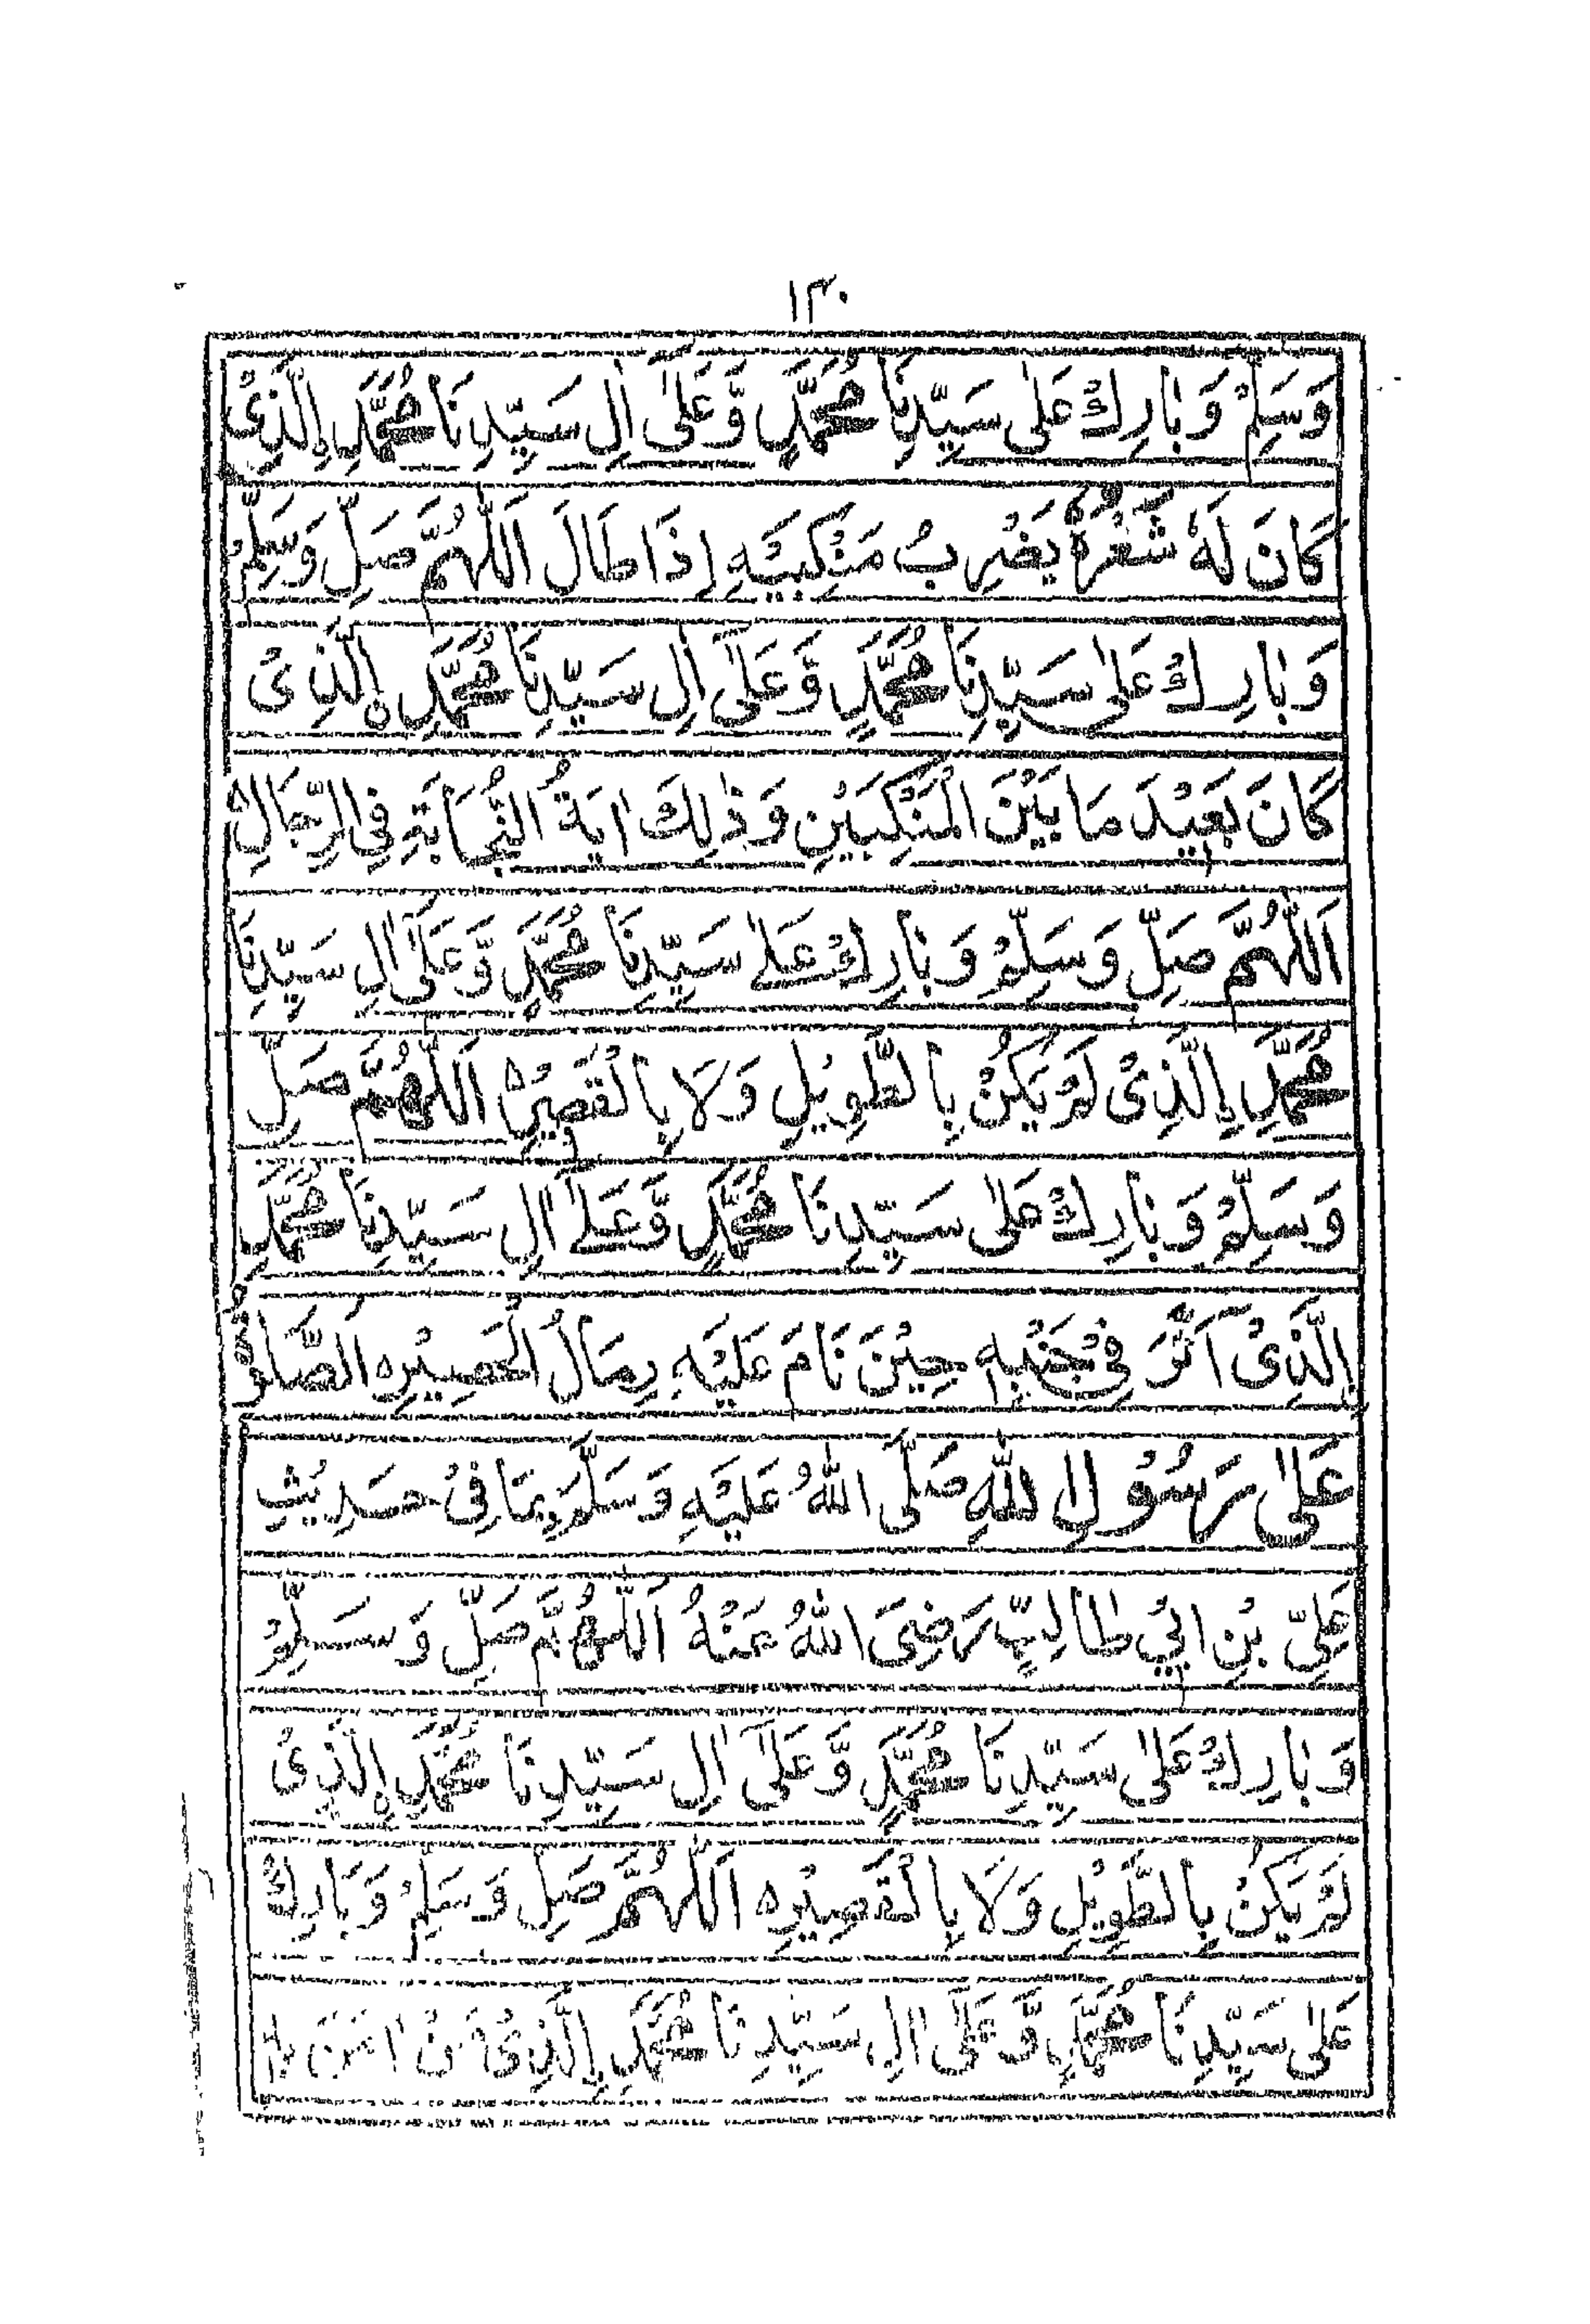 ١٣٠
وَسَلِّمْ وَبَارِكْ عَلٰى سَيِّدِنَا مُحَمَّدٍ وَّعَلٰى اٰلِ سَيِّدِنَا مُحَمَّدِ اِلَّذِىْ
كَانَ لَهٗ شَعْرٌ يَضْرِبُ مَنْكِبَيْهِ اِذَا طَالَ اَللّٰهُمَّ صَلِّ وَسَلِّمْ
وَبَارِكْ عَلٰى سَيِّدِنَا مُحَمَّدٍ وَّعَلٰٓى اٰلِ سَيِّدِنَا مُحَمَّدِ نِ الَّذِىْ
كَانَ بَعِيْدَ مَا بَيْنَ الْمَنْكِبَيْنِ وَذٰلِكَ اٰيَةُ النَّجَابَةِ فِى الرِّجَالِ
اَللّٰهُمَّ صَلِّ وَسَلِّمْ وَبَارِكْ عَلٰى سَيِّدِنَا مُحَمَّدٍ وَّعَلٰٓى اٰلِ سَيِّدِنَا
مُحَمَّدِ اِلَّذِىْ لَمْ يَكُنْ بِالطَّوِيْلِ وَلَا بِالْقَصِيْرِ اَللّٰهُمَّ صَلِّ
وَسَلِّمْ وَبَارِكْ عَلٰى سَيِّدِنَا مُحَمَّدٍ وَّعَلٰٓى اٰلِ سَيِّدِنَا مُحَمَّدِ
اِلَّذِىْ اَثَّرَ فِىْ جَنْبِهٖ حِيْنَ نَامَ عَلَيْهِ رِمَالُ الْحَصِيْرِه اَلصَّلٰوةُ
عَلٰى رَسُوْلِ اللّٰهِ صَلَّى اللّٰهُ عَلَيْهِ وَسَلَّمَ بِمَا فِىْ حَدِيْثِ
عَلِىِّ بْنِ اَبِىْ طَالِبٍ رَضِىَ اللّٰهُ عَنْهُ اَللّٰهُمَّ صَلِّ وَسَلِّمْ
وَبَارِكْ عَلٰى سَيِّدِنَا مُحَمَّدٍ وَّعَلٰٓى اٰلِ سَيِّدِنَا مُحَمَّدِ نِ الَّذِىْ
لَمْ يَكُنْ بِالطَّوِيْلِ وَلَا بِالْقَصِيْرِه اَللّٰهُمَّ صَلِّ وَسَلِّمْ وَبَارِكْ
عَلٰى سَيِّدِنَا مُحَمَّدٍ وَّعَلٰٓى اٰلِ سَيِّدِنَا مُحَمَّدِ اِلَّذِىْ مَنْ اٰمَنَ